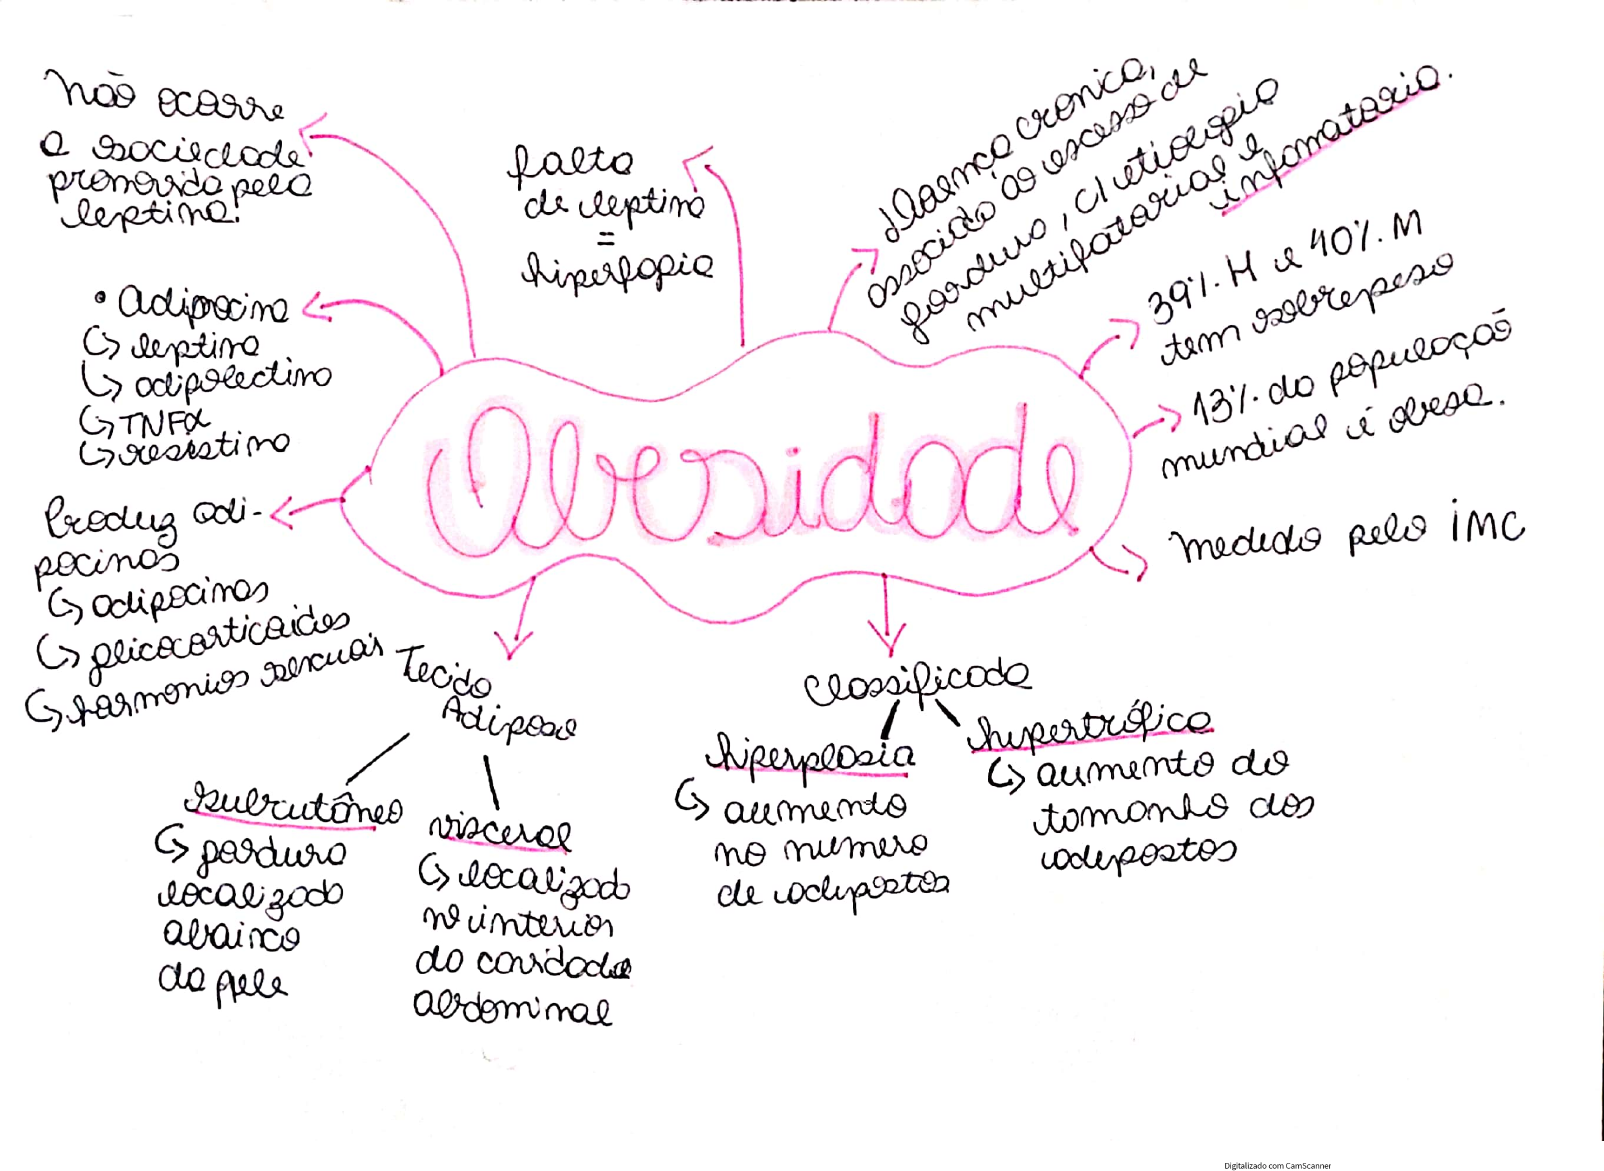 Não ocorre
a sociedade
promovida pela
leptina!
falta
de leptina
=
hiperfagia
doença cronica,
associado ao excesso de
gordura, c/ etiologia
multifatorial e
infamatoria.
39%. H e 40%. M
tem sobrepeso
13%. da população
mundial é obesa.
Medido pelo IMC
• Adipocina
↳ leptina
↳ adipolectina
↳ TNFα
↳ resistina
Produz adi-
pocinas
↳ adipocinas
↳ glicocorticoides
↳ harmonios sexuais
Obesidade
Tecido
Adiposo
subcutâneo
↳ gordura
localizada
abaixo
da pele
visceral
↳ localizado
no interior
da cavidade
abdominal
Classificada
hiperplasia
↳ aumento
no numero
de adipostos
hipertrófica
↳ aumento do
tamanho dos
adepostos
Digitalizado com CamScanner